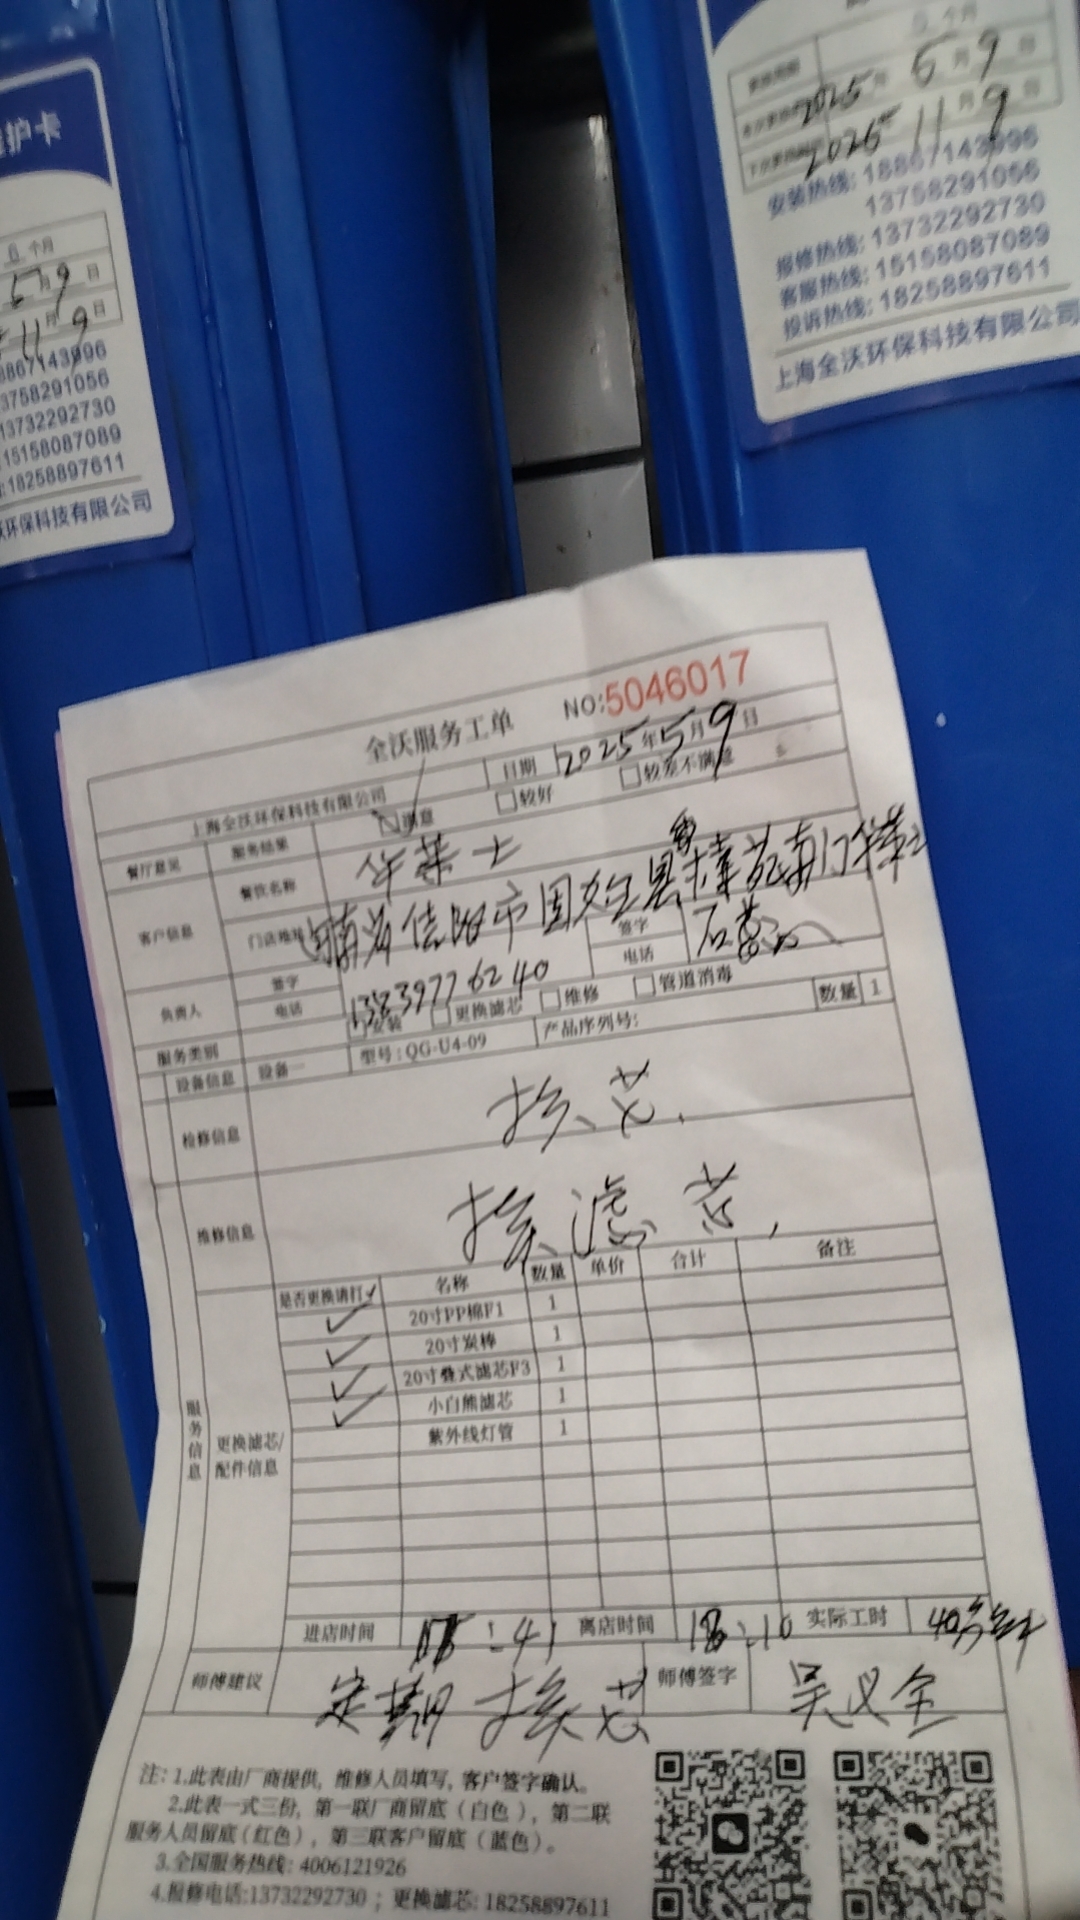 护卡
个月
5月9日
11月9日
18867143996
13758291056
13732292730
15158087089
:18258897611
沃环保科技有限公司
个月
2025年5月9日
2025 11月9日
安装热线: 18867143996
13758291056
报修热线: 13732292730
客服热线: 15158087089
投诉热线: 18258897611
上海全沃环保科技有限公司
全沃服务工单
NO:5046017
上海全沃环保科技有限公司
日期 2025年5月9日
餐厅意见 服务结果 满意 较好 较差不满意
客户信息 餐饮名称 华莱士
门店地址 河南省信阳市固始县
南门华莱士
负责人 签字 签字
电话 13839776240 电话
服务类别 安装 更换滤芯 维修 管道消毒
设备信息 设备一 型号: QG-U4-09 产品序列号: 数量 1
检修信息 换芯.
维修信息 换滤芯.
服务信息
更换滤芯/
配件信息
是否更换请打✓ 名称 数量 单价 合计 备注
✓ 20寸PP棉F1 1
✓ 20寸炭棒 1
✓ 20寸叠式滤芯F3 1
✓ 小白熊滤芯 1
紫外线灯管 1
进店时间 :41 离店时间 18:10 实际工时 40分钟
师傅建议 定期换芯 师傅签字 吴义全
注: 1.此表由厂商提供, 维修人员填写, 客户签字确认。
2.此表一式三份, 第一联厂商留底 (白色), 第二联
服务人员留底 (红色), 第三联客户留底 (蓝色)。
3.全国服务热线: 4006121926
4.报修电话:13732292730 ; 更换滤芯: 18258897611